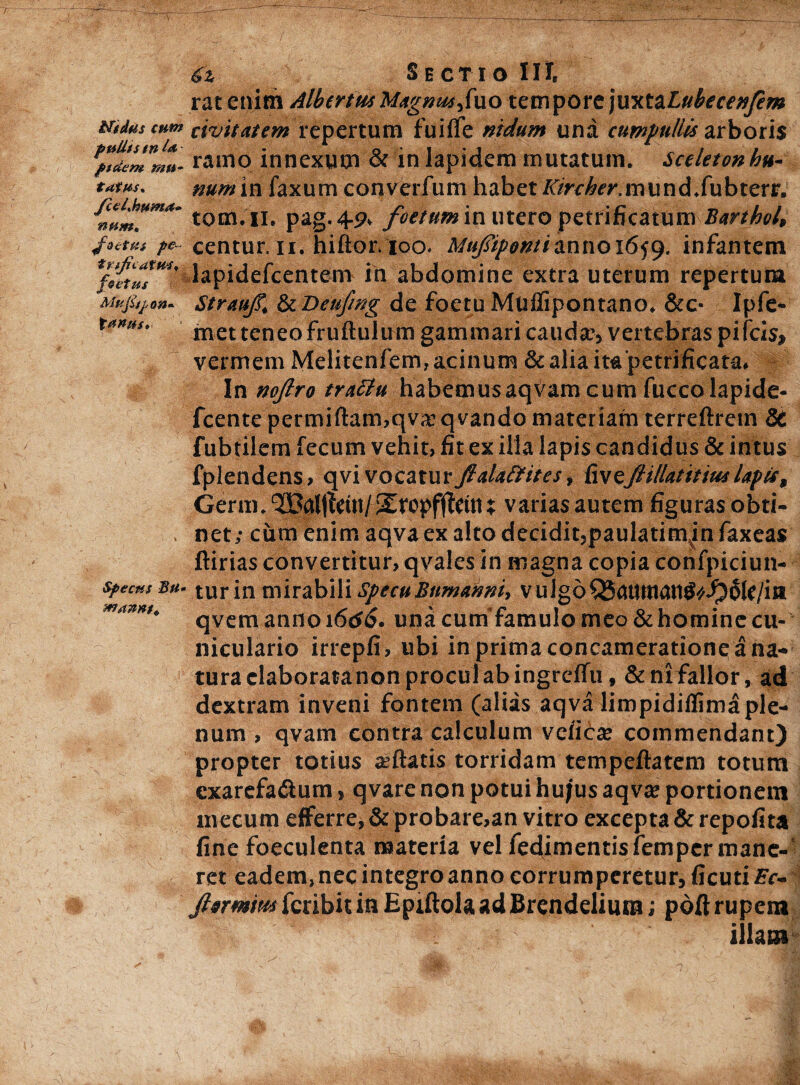 62 SECTIO III.
rat enim Albertus Magnus,ſuo tempore juxta Lubecenſem
civitatem repertum fuiſſe nidum unà cum pullis arboris
ramo innexum & in lapidem mutatum. Sceleton hu-
num in ſaxum converſum habet Kircher. mund.ſubterr.
tom. II. pag. 49. foetum in utero petrificatum Barthol.
centur. 11. hiſtor. 100. Muſsiponti anno 1659. infantem
lapideſcentem in abdomine extra uterum repertum
Strauſſ. & Deuſing de foetu Muſſipontano. &c. Ipſe-
met teneo fruſtulum gammari caudæ, vertebras piſcis,
vermem Melitenſem, acinum & alia ita petrificata.
In noſtro tractu habemus aqvam cum ſucco lapide-
ſcente permiſtam, qvæ qvando materiam terreſtrem &
ſubtilem ſecum vehit, fit ex illa lapis candidus & intus
ſplendens, qvi vocatur ſtalactites, ſive ſtillatitius lapis,
Germ. Walſtein/ Tropfſtein: varias autem figuras obti-
net; cùm enim aqva ex alto decidit, paulatim in ſaxeas
ſtirias convertitur, qvales in magna copia conſpiciun-
tur in mirabili Specu Bumanni, vulgò Baumans-Höle/in
qvem anno 1666. unà cum famulo meo & homine cu-
niculario irrepſi, ubi in prima concameratione à na-
tura elaborata non procul ab ingreſſu, & nì fallor, ad
dextram inveni fontem (aliàs aqvâ limpidiſſimâ ple-
num, qvam contra calculum veſicæ commendant)
propter totius æſtatis torridam tempeſtatem totum
exarefactum, qvare non potui hujus aqvæ portionem
mecum efferre, & probare, an vitro excepta & repoſita
ſine foeculenta materia vel ſedimentis ſemper mane-
ret eadem, nec integro anno corrumperetur, ſicuti Ec-
ſtormius ſcribit in Epiſtola ad Brendelium; pòſt rupem
illam
Nidus cum
pullis in la-
pidem mu-
tatus.
ſcel. huma-
num.
foetus pe-
trificatus.
foetus
Muſsipon-
tanus.
Specus Bu-
manni.